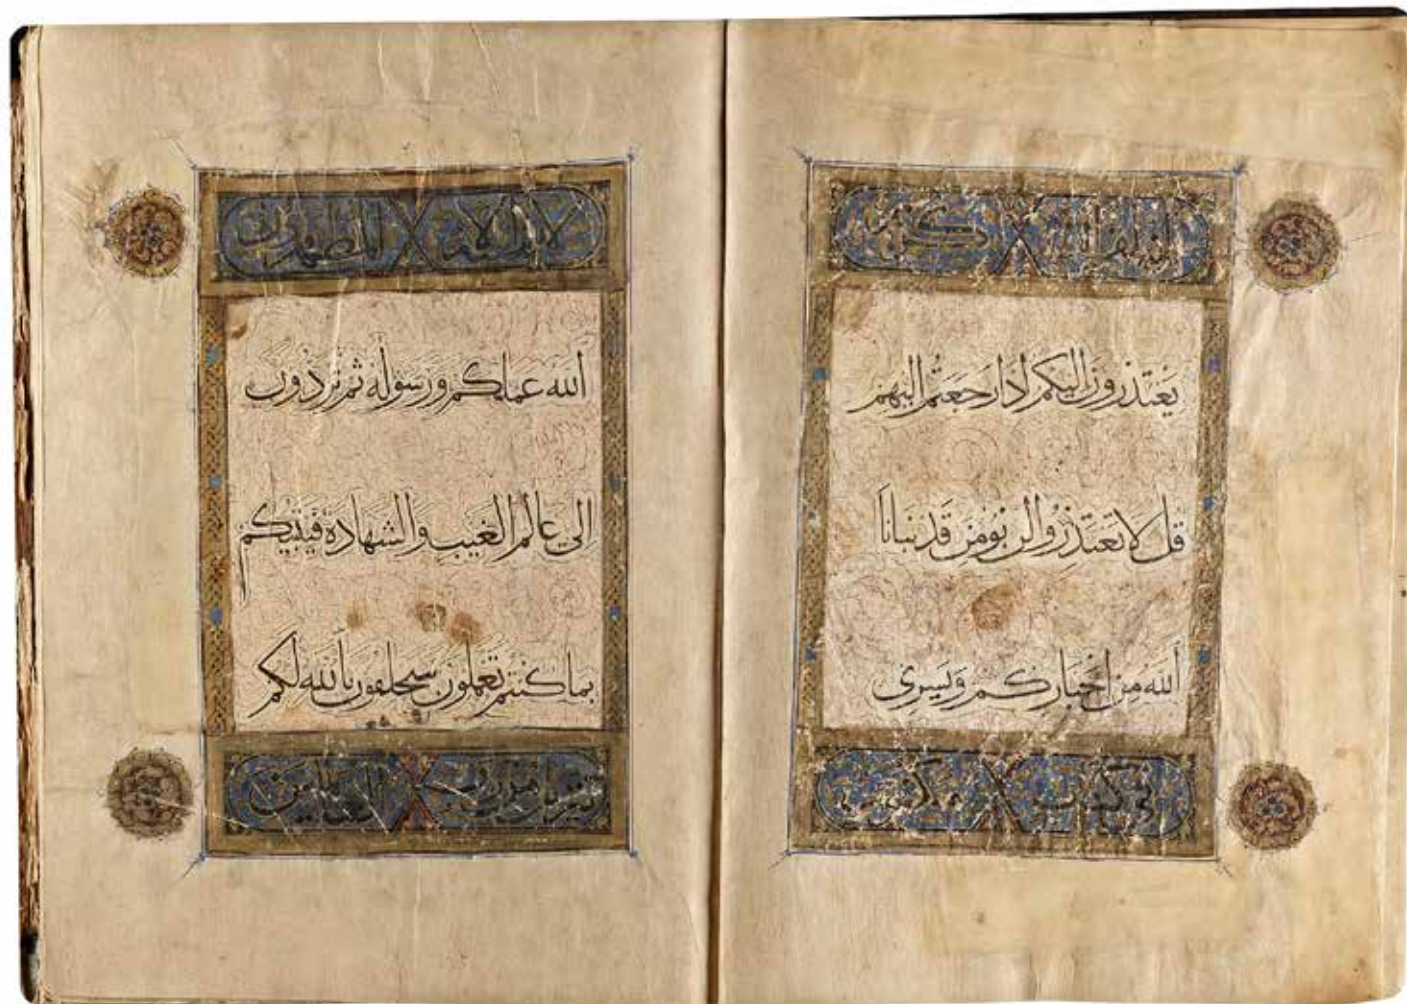 إنه لقرآن كريم
يعتذرون إليكم اذا رجعتم اليهم
قل لا تعتذروا لن نومن قد نبانا
الله من اخباركم وسيرى
في كتاب مكنون
لا يمسه الا المطهرون
الله عملكم ورسوله ثم تردون
الى عالم الغيب والشهادة فينبئكم
بما كنتم تعملون سيحلفون بالله لكم
تنزيل من رب العالمين